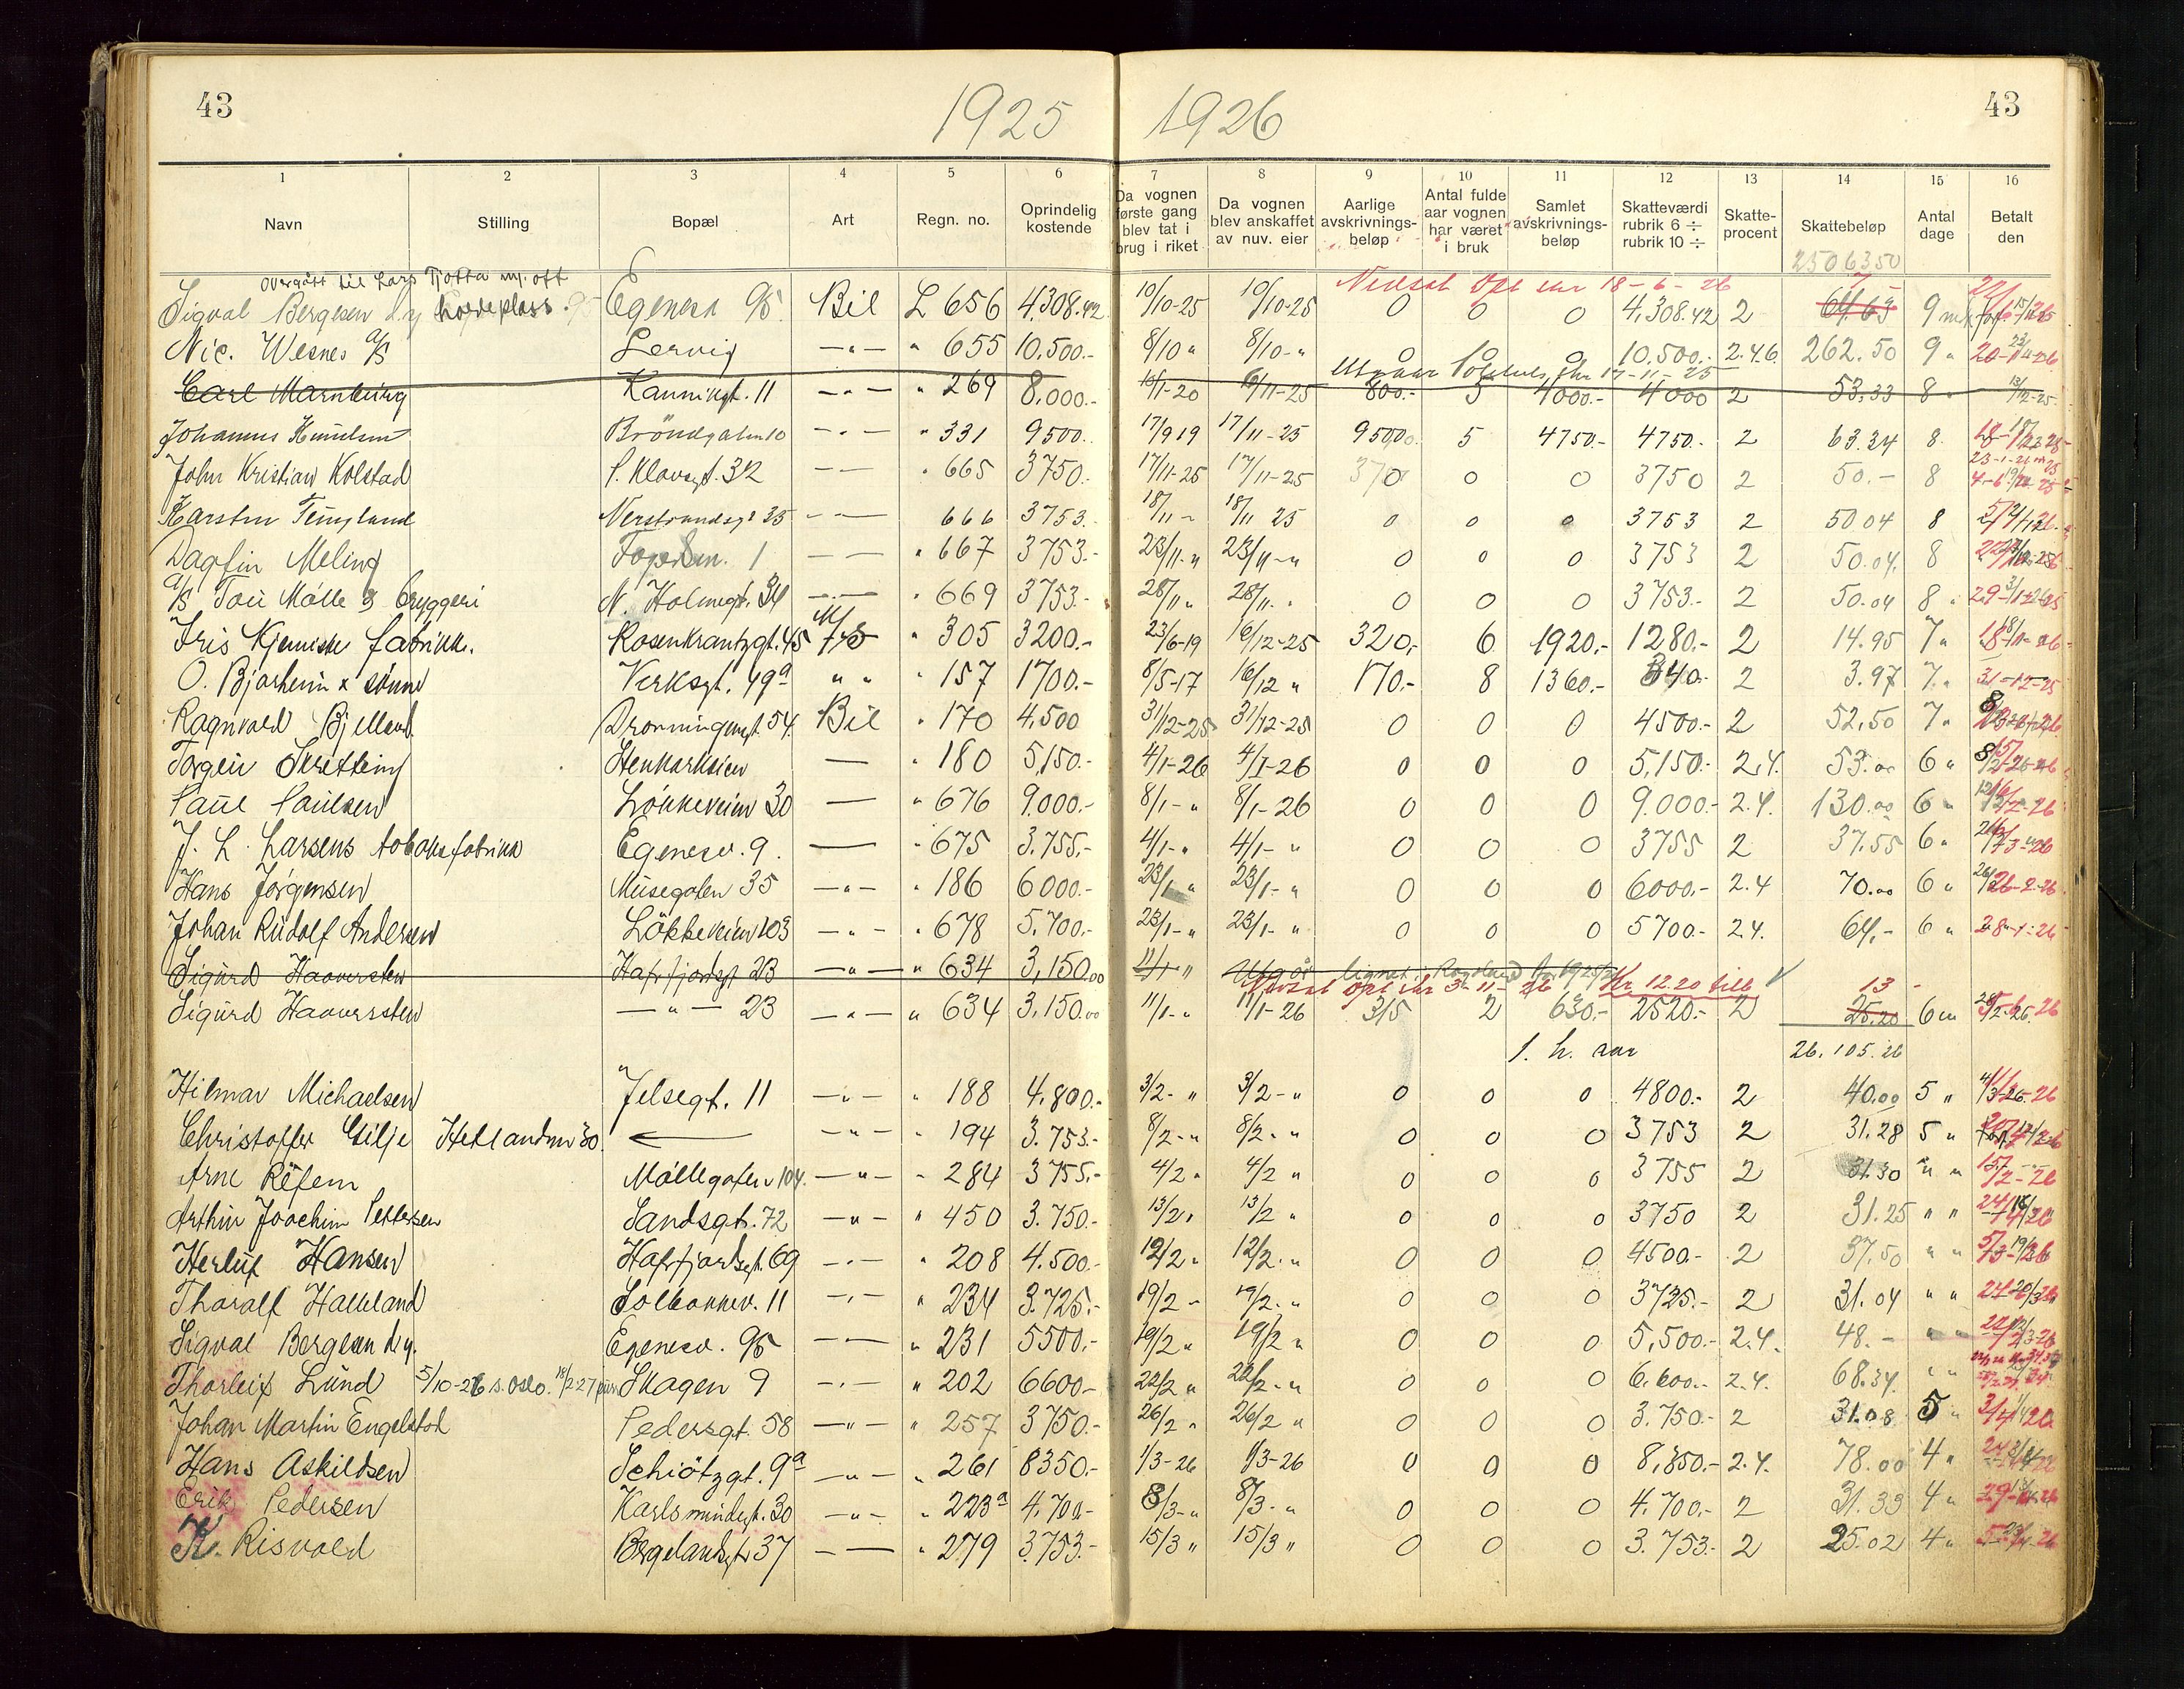 43
1925 1926
43
1 2 3 4 5 6 7 8 9 10 11 12 13 14 15 16
Navn Stilling Bopæl Art Regn. no. Oprindelig kostende Da vognen første gang blev tat i brug i riket Da vognen blev anskaffet av nuv. eier Aarlige avskrivnings-beløp Antal fulde aar vognen har været i bruk Samlet avskrivnings-beløp Skatteværdi rubrik 6 ÷ rubrik 10 ÷ Skatte-procent Skattebeløp Antal dage Betalt den
2506350
Overgått til Lars Tjotta
Nedsat 18-6-26 7-
Sigval Bergesen d.y. Egenesv 95 Bil L 656 4.308.42 10/10-25 10/10-25 0 0 0 4,308.42 2 64.63 9
Nic. Wesnes A/S Lervig —"— " 655 10.500.- 8/10 " 8/10-" 0 0 0 10,500.- 2.4.6. 262.50 9 "
17-11-25
Carl Marnburg Kannikgt. 11 —"— " 269 8.000.- 16/1-20 6/11-25 800.- 5 4000.- 4000 2 53.33 8
Johannes Knudsen Bröndgaten 10 —"— " 331 9500.- 17/9 19 17/11-25 950,00 5 4750.- 4750.- 2 63.34 8
John Kristian Kolstad P. Klowsgt. 32 —"— " 665 3750.- 17/11-25 17/11-25 0 0 0 3750 2 50.- 8
Karsten Tengland Nerstrandsgt 35 —"— 666 3753.- 18/11 - 18/11 25 0 0 0 3753 2 50 04 8
Dagfin Meling 1 —"— " 667 3753.- 23/11-" 23/11-" 0 0 0 3753 2 50.04. 8
A/S Tou Mølle & Bryggeri N. Holmegt. 34 —"— " 669 3753.- 28/11 " 28/11. " 0 0 0 3753.- 2 50.04 8
Iris Kjemiske fabrikk. Rosenkrantzgt. 45 M/c " 305 3200.- 23/6-19 16/12-25 320,- 6 1920,- 1280.- 2 14.95 7 "
O. Bjorheim & sønner Verksgt. 49a " " " 157 1700.- 8/5-17 16/12 " 170.- 8 1360.- 340.- 2 3.97 7. " 31-12-25
Ragnvald Bjelland Dronningensgt. 54. Bil " 170 4,500 31/12-25 31/12-25 0 0 0 4500.- 2 52,50 7 "
Torgeir Skretting Stenkarkaien — " 180 5,150.- 4/1-26 4/1-26 0 0 0 5,150.- 2.4. 53.00 6 "
Paul Paulsen Løkkeveien 30 — " 676 9.000.- 8/1-" 8/1-26 0 0 0 9.000.- 2.4. 130.00 6 "
J. L. Larsens tobaksfabrikk Egenesv. 9. — " 675 3.755,- 4/1-" 4/1-" 0 0 0 3755 2 37.55 6 "
Hans Jørgensen Musegaten 35 —"— " 186 6000.- 23/1 " 23/1-" 0 0 0 6000.- 2.4 70.00 6 "
Johan Rudolf Andersen Løkkeveien 103 —"— " 678 5,700.- 23/1-" 23/1-" 0 0 0 5700.- 2.4. 64,- 6 "
Sigurd Haaversten Hafrsfjordsgt 23 —"— " 634 3,150.00 11/1-"
3-11-26 Kr. 12.20 13 -
Sigurd Haaversten —"— 23 —"— " 634 3,150.00 11/1-" 11/1-26 315 2 630.- 2520.- 2 25.20 6
1. h. aar 26.105.26
Hilmar Michaelsen Jelsegt. 11 —"— " 188 4.800.- 3/2-" 3/2-" 0 0 0 4800.- 2 40.00 5 "
Christoffer Gilje Hetlandsn 30. ← —"— " 194 3.753.- 8/2-" 8/2-" 0 0 0 3753 2 31.28 5 "
Arne Refem Møllegaten 104. —"— " 284 3755,- 4/2 " 4/2 " 0 0 0 3755 2 31.30 " "
Arthur Joachim Pettersen Sandsgt. 72 —"— " 450 3.750.- 13/2 " 13/2 " 0 0 0 3750 2 31.25 " "
Herluf Hansen Hafrsfjordsgt. 69 —"— " 208 4.500.- 12/2 " 12/2. " 0 0 0 4500.- 2 37.50 " "
Thoralf Halleland Solbakkev. 11 —"— " 234 3.725.- 19/2 - 19/2. " 0 0 0 3725.- 2 31.04 " "
Sigval Bergesen d.y. Egenesv. 95 —"— " 231 5500.- 19/2 " 19/2 " 0 0 0 5,500.- 2.4. 48.- " "
Thorleif Lund 5/10-26 s. Oslo. Skagen 9 —"— " 202 6600.- 22/2 " 22/2-" 0 0 0 6.600.- 2.4. 68.34. " "
Johan Martin Engelstad Pedersgt. 58 —"— " 257 3750.- 26/2 " 26/2 " 0 0 0 3.750.- 2 31.08 5 "
Hans Askildsen Schiötzgt. 9a —"— " 261 8350.- 1/3-26 1/3-26 0 0 0 8,350.- 2.4. 78.00 4 "
Erik Pedersen Karlsmindegt. 30 —"— " 223a 4.700.- 8/3-" 8/3-" 0 0 0 4.700.- 2 31.33 4 "
K. Risvold Bergelandsgt 37 —"— " 279 3.753.- 15/3 " 15/3 " 0 0 0 3.753.- 2 25.02 4 "